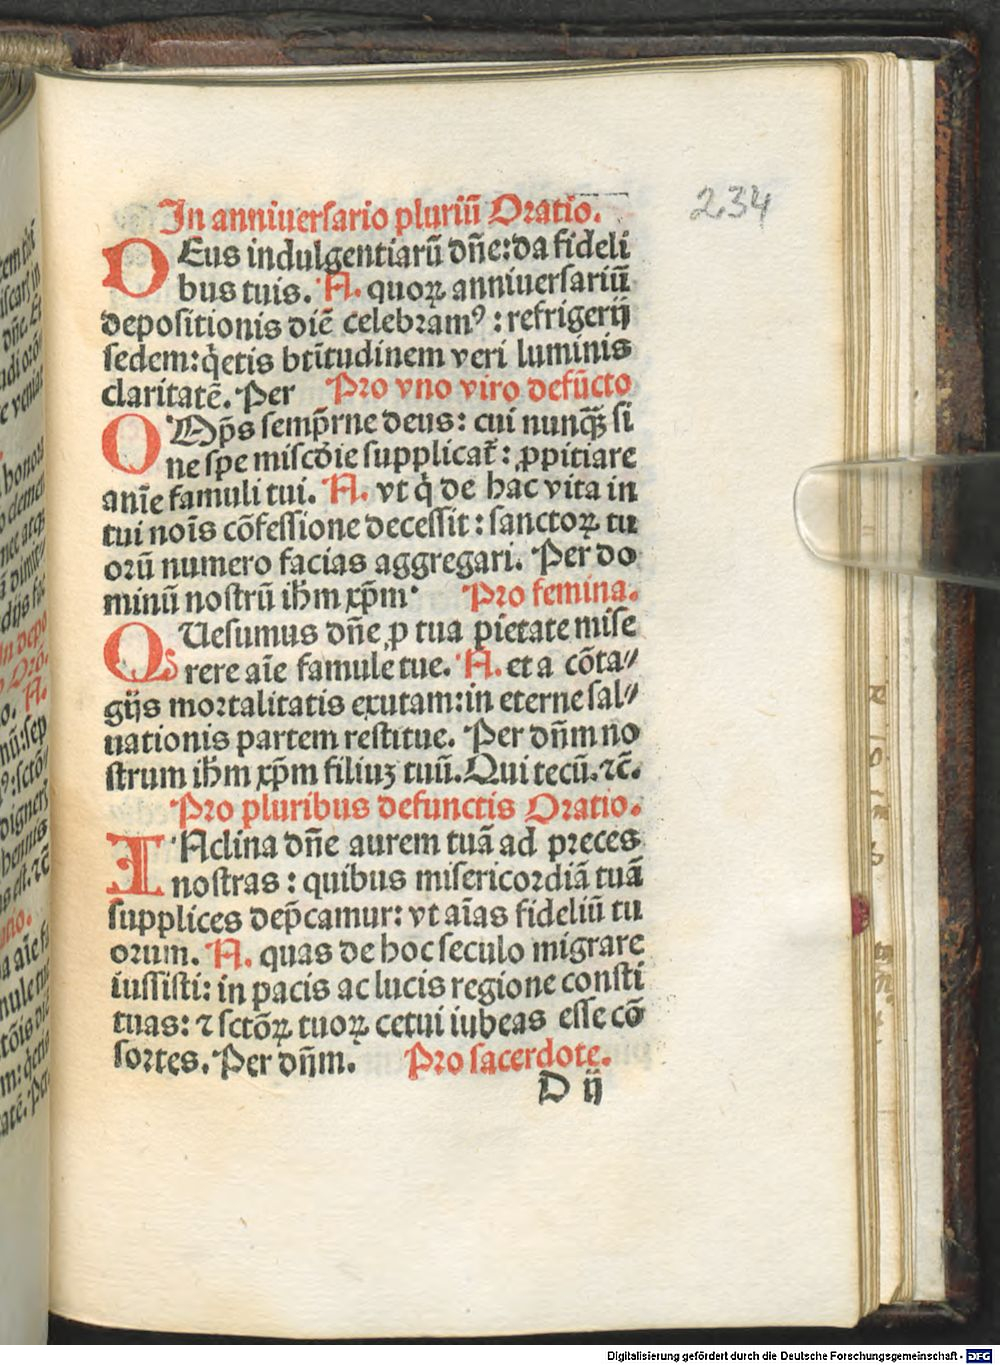 In anniuersario pluriū Oratio.
234
DEus indulgentiarū dn̄e: da fideli
bus tuis. A. quoꝝ anniuersariū
depositionis diē celebramꝰ : refrigerij
sedem: q̇etis bt̄itudinem veri luminis
claritatē. Per Pro vno viro defūcto
OMp̄s semp̄rne deus: cui nunq̄ꝫ si
ne spe misc̄die supplicat̄ : ꝓpitiare
anīe famuli tui. A. vt q̇ de hac vita in
tui noīs cōfessione decessit : sanctoꝝ tu
orū numero facias aggregari. Per do
minū nostrū ih̄m xp̄m. Pro femina.
QUesumus dn̄e ꝓ tua pietate mise
rere aīe famule tue. A. et a cōta⸗
gijs mortalitatis exutam: in eterne sal⸗
uationis partem restitue. Per dn̄m no
strum ih̄m xp̄m filiuꝫ tuū. Qui tecū. ⁊c̄.
Pro pluribus defunctis Oratio.
INclina dn̄e aurem tuā ad preces
nostras : quibus misericordiā tuā
supplices dep̄camur: vt aīas fideliū tu
orum. A. quas de hoc seculo migrare
iussisti: in pacis ac lucis regione consti
tuas: ⁊ sctōꝝ tuoꝝ cetui iubeas esse cō
sortes. Per dn̄m. Pro sacerdote.
D ij
Digitalisierung gefördert durch die Deutsche Forschungsgemeinschaft - DFG